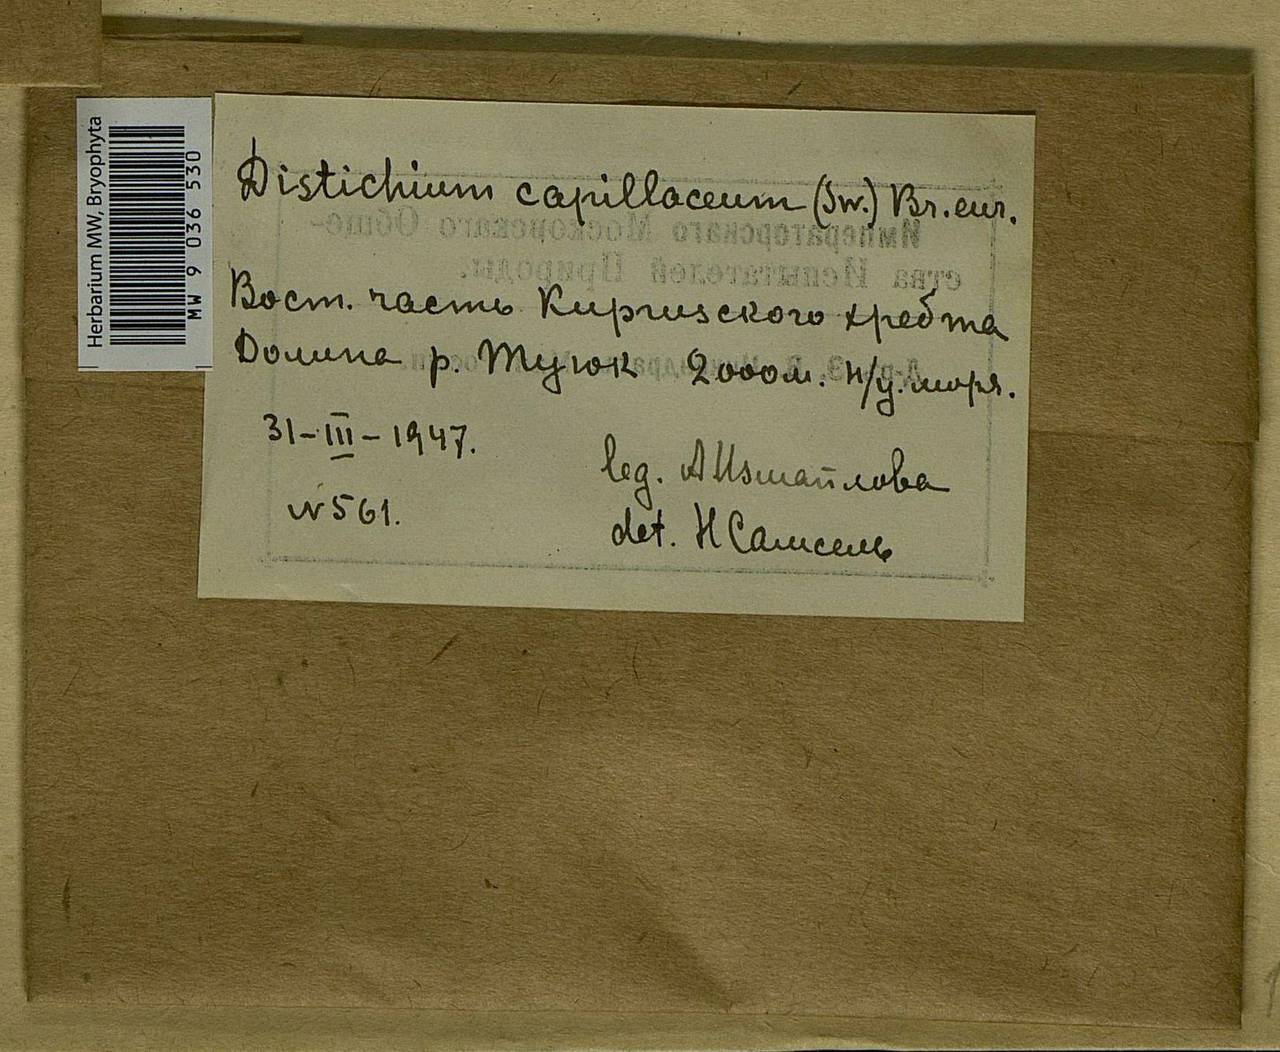 Herbarium MW, Bryophyta
MW 9 036 530
Distichium capillaceum (Sw.) Br. eur.
Императорскаго Московскаго Обще-
ства Испытателей Природы.
Вост. часть Киргизского хребта
Долина р. Туюк 2000м. н/у. моря.
31-III-1947.
leg. А Измайлова
N 561.
det. Н Самсель